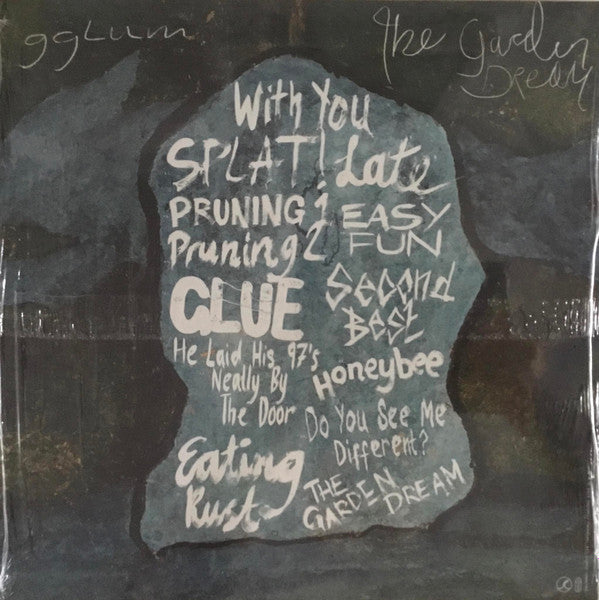 gglum
The Garden
Dream
With You
SPLAT!
Late
PRUNING 1
EASY
FUN
Pruning 2
GLUE
Second
Best
He Laid His 97's
Neatly By
The Door
Honeybee
Do You See Me
Different?
Eating
Rust
THE
GARDEN
DREAM